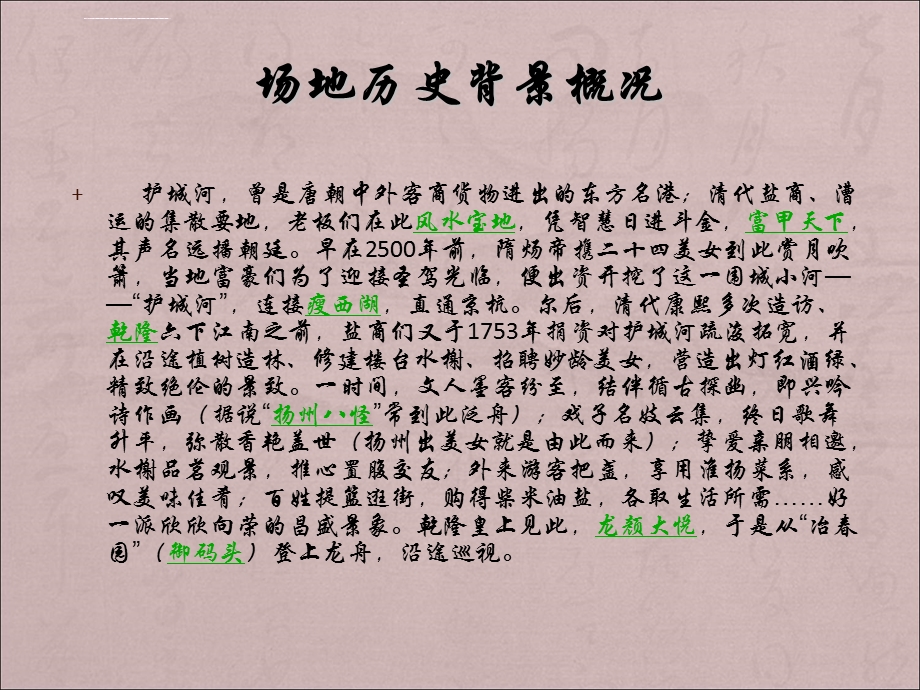 场地历史背景概况
+ 护城河，曾是唐朝中外客商货物进出的东方名港；清代盐商、漕
运的集散要地，老板们在此风水宝地，凭智慧日进斗金，富甲天下，
其声名远播朝廷。早在2500年前，隋炀帝携二十四美女到此赏月吹
箫，当地富豪们为了迎接圣驾光临，便出资开挖了这一围城小河—
—“护城河”，连接瘦西湖，直通京杭。尔后，清代康熙多次造访、
乾隆六下江南之前，盐商们又于1753年捐资对护城河疏浚拓宽，并
在沿途植树造林、修建楼台水榭、招聘妙龄美女，营造出灯红酒绿、
精致绝伦的景致。一时间，文人墨客纷至，结伴循古探幽，即兴吟
诗作画（据说“扬州八怪”常到此泛舟）；戏子名妓云集，终日歌舞
升平，弥散香艳盖世（扬州出美女就是由此而来）；挚爱亲朋相邀，
水榭品茗观景，推心置腹交友；外来游客把盏，享用淮扬菜系，感
叹美味佳肴；百姓提篮逛街，购得柴米油盐，各取生活所需……好
一派欣欣向荣的昌盛景象。乾隆皇上见此，龙颜大悦，于是从“冶春
园”（御码头）登上龙舟，沿途巡视。